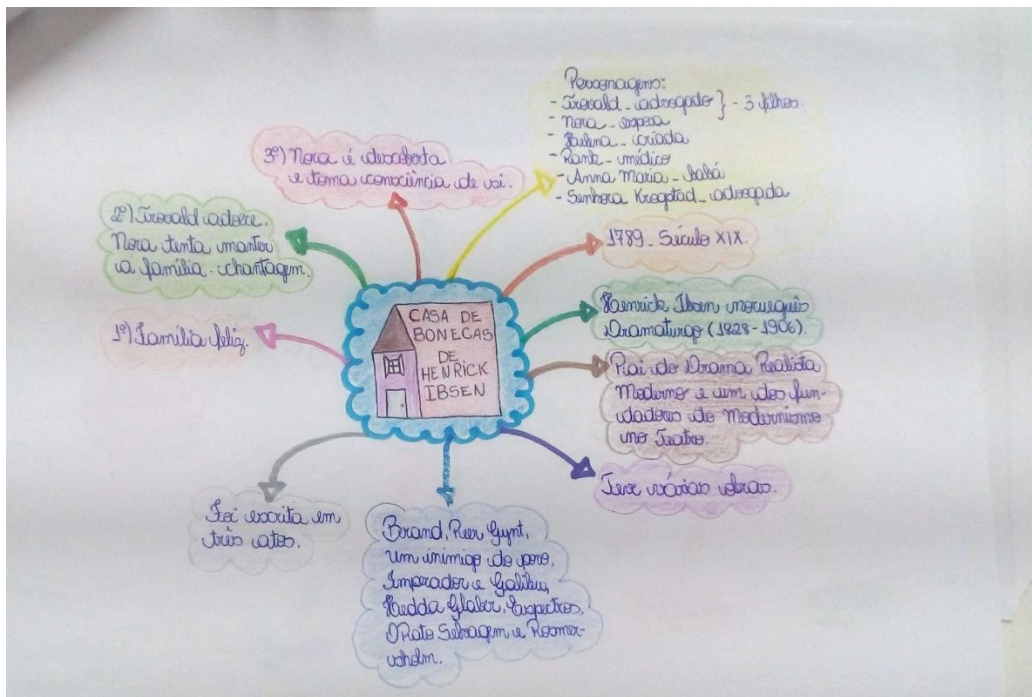 CASA DE
BONECAS
DE
HENRICK
IBSEN
Personagens:
- Trovald - advogado } - 3 filhos.
- Nora - esposa
- Helena - criada
- Rank - médico
- Anna Maria - babá
- Senhora Krogstad - advogada
1789 - Século XIX.
Henrick Ibsen norueguês
Dramaturgo (1828-1906).
Pai do Drama Realista
Moderno e um dos fun-
dadores do Modernismo
no Teatro.
Teve várias obras.
Brand, Peer Gynt,
um inimigo do povo,
Imperador e Galileu,
Hedda Glaber, Espectros,
O Pato Selvagem e Rosmer-
sholm.
Foi escrita em
três atos.
1º) Família feliz.
2º) Trovald adoece.
Nora tenta manter
a família - chantagem.
3º) Nora é descoberta
e toma consciência de si.